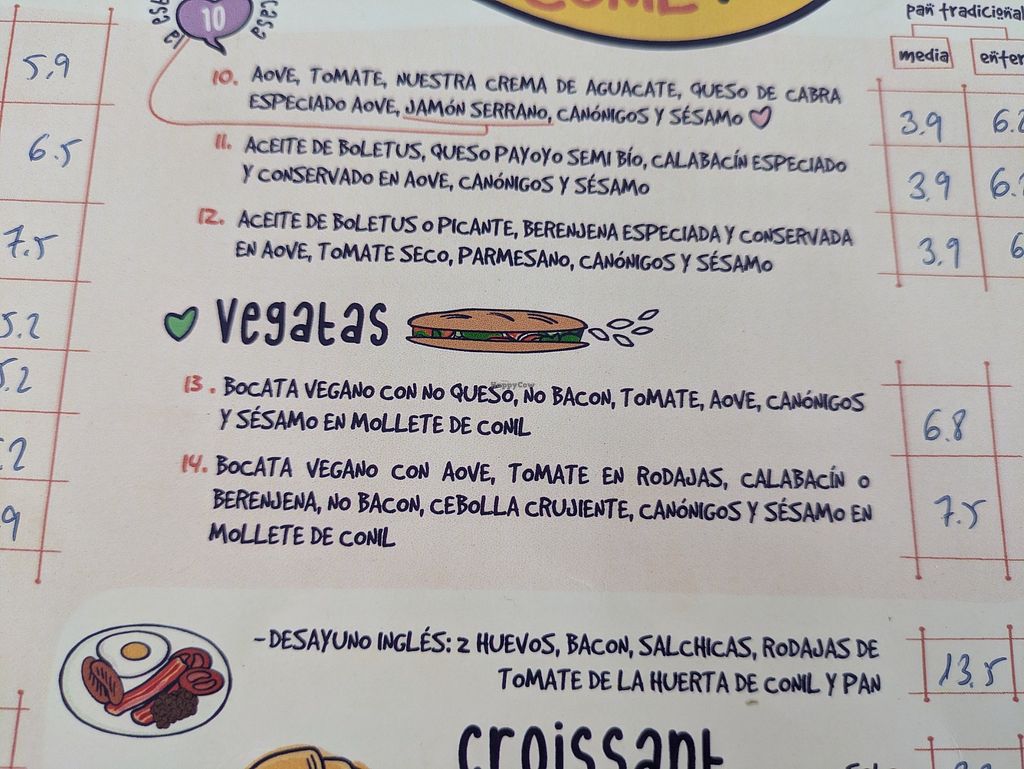 10
la casa
pan tradicional
media
5,9
10. AOVE, TOMATE, NUESTRA CREMA DE AGUACATE, QUESO DE CABRA
ESPECIADO AOVE, JAMÓN SERRANO, CANÓNIGOS Y SÉSAMO
3.9
6.5
11. ACEITE DE BOLETUS, QUESO PAYOYO SEMI BÍO, CALABACÍN ESPECIADO
Y CONSERVADO EN AOVE, CANÓNIGOS Y SÉSAMO
3,9
7.5
12. ACEITE DE BOLETUS O PICANTE, BERENJENA ESPECIADA Y CONSERVADA
EN AOVE, TOMATE SECO, PARMESANO, CANÓNIGOS Y SÉSAMO
3.9
5.2
Vegatas
HappyCow
13. BOCATA VEGANO CON NO QUESO, NO BACON, TOMATE, AOVE, CANÓNIGOS
Y SÉSAMO EN MOLLETE DE CONIL
6.8
14. BOCATA VEGANO CON AOVE, TOMATE EN RODAJAS, CALABACÍN O
BERENJENA, NO BACON, CEBOLLA CRUJIENTE, CANÓNIGOS Y SÉSAMO EN
MOLLETE DE CONIL
7.5
-DESAYUNO INGLÉS: 2 HUEVOS, BACON, SALCHICAS, RODAJAS DE
TOMATE DE LA HUERTA DE CONIL Y PAN
13.5
croissant